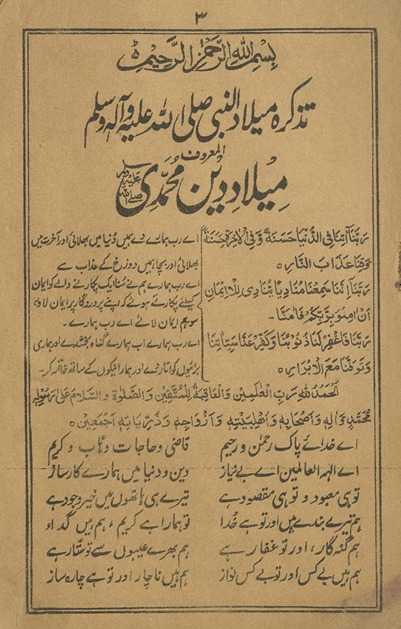 ۳
بسم اللہ الرحمن الرحیم
تذکرہ میلاد النبی صلی اللہ علیہ وآلہ وسلم
المعروف
میلاد دین محمدی صلی اللہ علیہ وسلم
رَبَّنَا اٰتِنَا فِی الدُّنْیَا حَسَنَةً وَّفِی الْاٰخِرَةِ حَسَنَةً
وَّقِنَا عَذَابَ النَّارِ
رَبَّنَا اِنَّنَا سَمِعْنَا مُنَادِیًا یُّنَادِیْ لِلْاِیْمَانِ
اَنْ اٰمِنُوْا بِرَبِّكُمْ فَاٰمَنَّا
رَبَّنَا فَاغْفِرْ لَنَا ذُنُوْبَنَا وَكَفِّرْ عَنَّا سَیِّاٰتِنَا
وَتَوَفَّنَا مَعَ الْاَبْرَارِ
اے رب ہمارے دے ہمیں دنیا میں بھلائی اور آخرت میں
بھلائی اور بچا ہمیں دوزخ کے عذاب سے
اے رب ہمارے ہم نے سنا ایک پکارنے والے کو ایمان
کیلئے پکارتے ہوئے کہ اپنے پروردگار پر ایمان لاؤ،
سو ہم ایمان لائے اے رب ہمارے۔
اے رب ہمارے اب ہمارے گناہ بخش دے اور ہماری
برائیوں کو اتار دے اور ہمارا نیکوں کے ساتھ خاتمہ کر۔
اَلْحَمْدُ لِلّٰهِ رَبِّ الْعٰلَمِیْنَ وَالْعَاقِبَةُ لِلْمُتَّقِیْنَ وَالصَّلٰوةُ وَالسَّلَامُ عَلٰی رَسُوْلِهٖ
مُحَمَّدٍ وَّاٰلِهٖ وَاَصْحَابِهٖ وَاَهْلِبَیْتِهٖ وَاَزْوَاجِهٖ وَذُرِّیَاتِهٖ اَجْمَعِیْنَ
اے خدائے پاک رحمٰن و رحیم قاضی حاجات و وہاب و کریم
اے الٰہ العالمین اے بے نیاز دین و دنیا میں ہمارے کارساز
تو ہی معبود و تو ہی مقصود ہے تیرے ہی ہاتھوں میں خیر و جود ہے
ہم تیرے بندے ہیں اور تو ہے خدا تو ہمارا ہے کریم، ہم ہیں گدا
ہم گنہ گار، اور تو غفار ہے ہم بھرے عیبوں سے تو ستار ہے
ہم ہیں بے کس اور تو بے کس نواز ہم ہیں ناچار اور تو ہے چارہ ساز